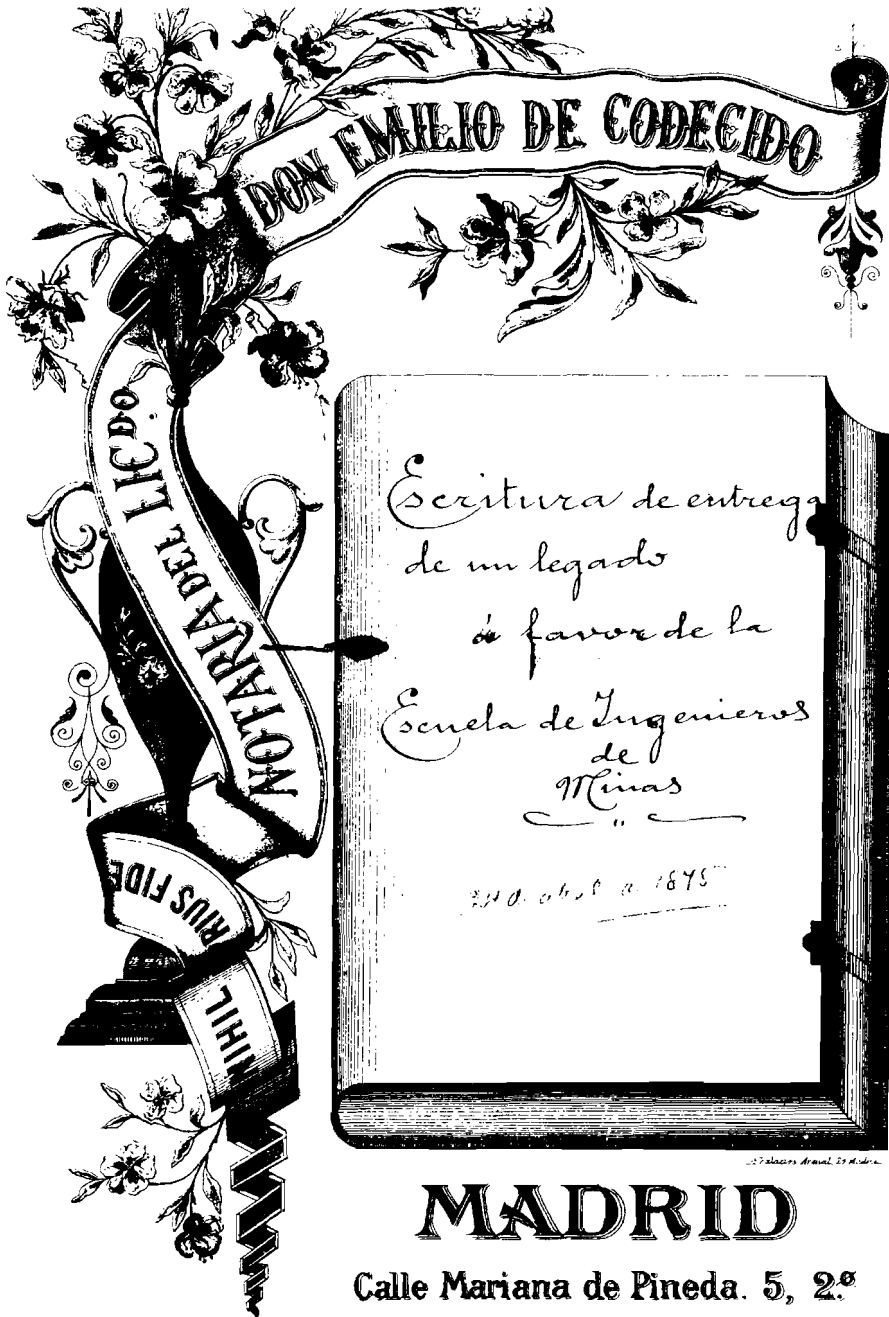 NOTARIA DEL LICDO.
DON EMILIO DE CODECIDO
NIHIL
RIUS FIDE
Escritura de entrega
de un legado
á favor de la
Escuela de Ingenieros
de
Minas
1895
MADRID
Calle Mariana de Pineda. 5, 2º